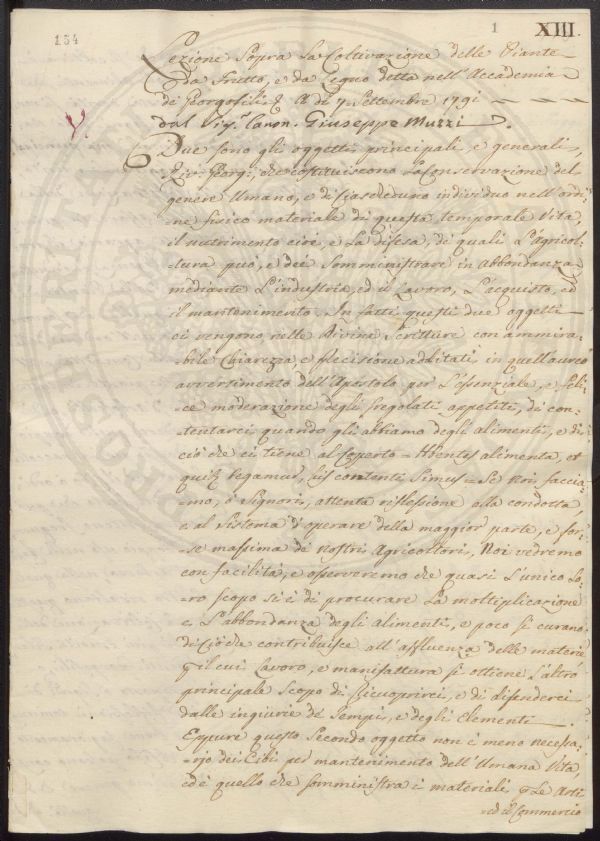 154
1
XIII.
Lezione Sopra la Coltivazione delle Piante
da Frutto, e da Legno detta nell'Accademia
de Georgofili il dì 7 Settembre 1791
dal Sig.r Canon. Giuseppe Muzzi
Due sono gli oggetti principali, e generali,
che costituiscono la Conservazione del
genere Umano, e di ciascheduno individuo nell'ordi-
-ne fisico materiale di questa temporale Vita,
il nutrimento cioè, e la difesa, de quali L'agricol-
-tura può, e dee somministrare in abbondanza
mediante L'industria, ed il Lavoro, L'acquisto, ed
il mantenimento. In fatti questi due oggetti
ci vengono nelle Divine Scritture con ammira-
-bile Chiarezza e precisione additati, in quell'aureo
avvertimento dell'Apostolo per L'essenziale, e feli-
-ce moderazione degli sregolati appetiti, di con-
-tentarci quando gli abbiamo degli alimenti, e di
ciò che ci tiene al coperto = Habentes alimenta, et
quibus tegamur, his contenti simus = Se Noi faccia-
-mo, ò Signori, attenta riflessione alla condotta,
e al Sistema d'operare della maggior parte, e for-
-se massima de nostri Agricoltori, Noi vedremo
con facilità, e osserveremo che quasi L'unico Lo-
-ro scopo si è di procurare La moltiplicazione
e L'abbondanza degli alimenti, e poco si curano
di ciò che contribuisce all'affluenza delle materie
il cui Lavoro, e manifattura si ottiene L'altro
principale Scopo di Ricuoprirci, e di difenderci
dalle ingiurie de Tempi, e degli Elementi.
Eppure questo Secondo oggetto non è meno necessa-
-rio dei Cibi pel mantenimento dell'Umana Vita,
ed è quello che somministra i materiali Le Arti
ed il Commercio